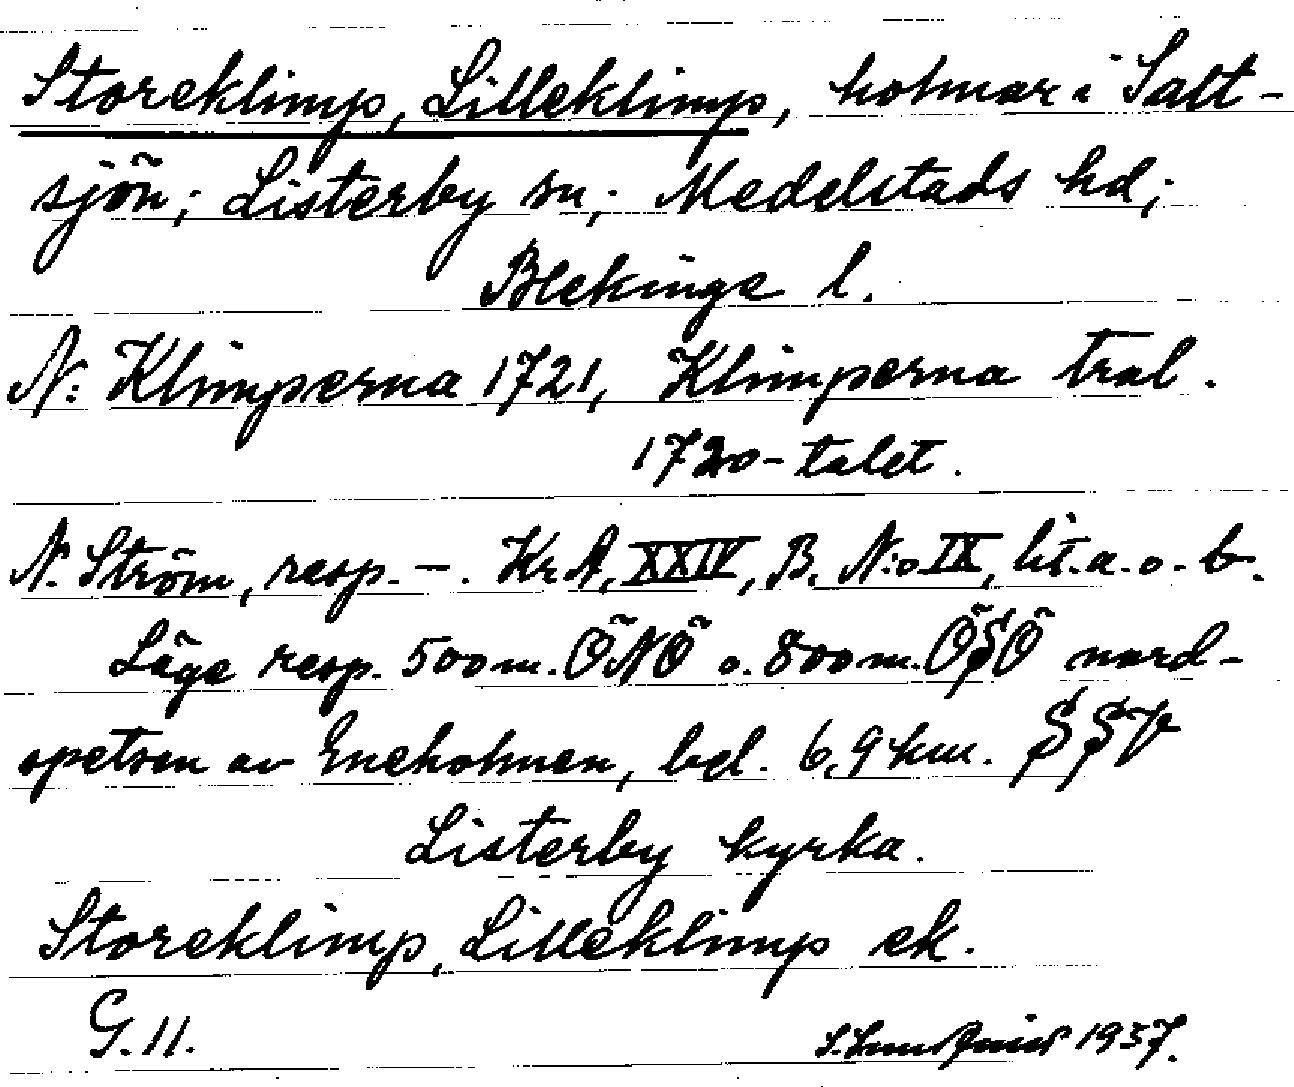 Storeklimp, Lilleklimp, holmar i Salt-
sjön; Listerby sn; Medelstads hd;
Blekinge l.
N: Klimperna 1721, Klimperna tral.
1720-talet.
N. Ström, resp. –. Kr.A. XXIV, B. N:o IX, lit. a. o. b.
Läge resp. 500 m. ÖNÖ o. 800 m. ÖSÖ nord-
spetsen av Eneholmen, bel. 6,9 km. SSV
Listerby kyrka.
Storeklimp, Lilleklimp ek.
G. 11.
1937.